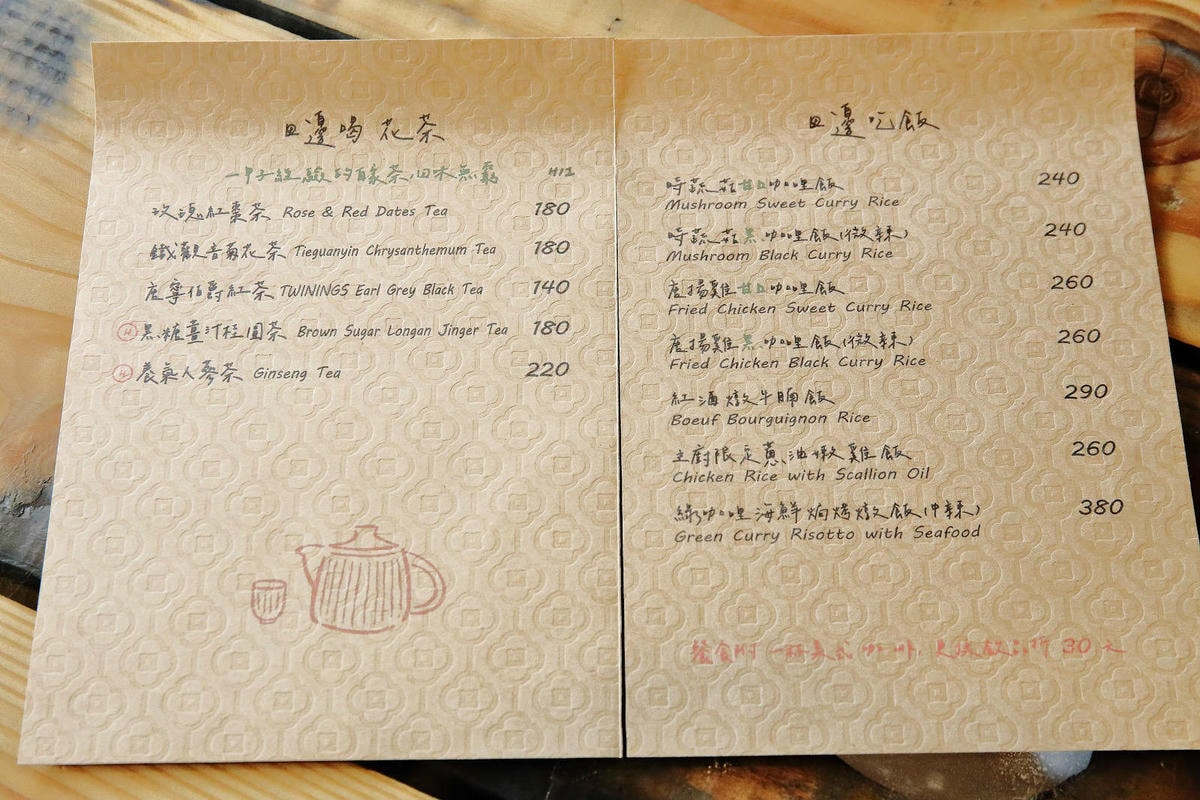 田邊喝花茶
一甲子經驗的自家茶,回味無窮 H/I
玫瑰紅棗茶 Rose & Red Dates Tea 180
鐵觀音菊花茶 Tieguanyin Chrysanthemum Tea 180
唐寧伯爵紅茶 TWININGS Earl Grey Black Tea 140
H 黑糖薑汁桂圓茶 Brown Sugar Longan Jinger Tea 180
H 養氣人蔘茶 Ginseng Tea 220
田邊吃飯
時蔬菇甘口咖哩飯 240
Mushroom Sweet Curry Rice
時蔬菇黑咖哩飯(微辣) 240
Mushroom Black Curry Rice
唐揚雞甘口咖哩飯 260
Fried Chicken Sweet Curry Rice
唐揚雞黑咖哩飯(微辣) 260
Fried Chicken Black Curry Rice
紅酒燉牛腩飯 290
Boeuf Bourguignon Rice
主廚限定蔥油嫩雞飯 260
Chicken Rice with Scallion Oil
綠咖哩海鮮焗烤燉飯(中辣) 380
Green Curry Risotto with Seafood
餐食附一杯美式咖啡,更換飲品折30元